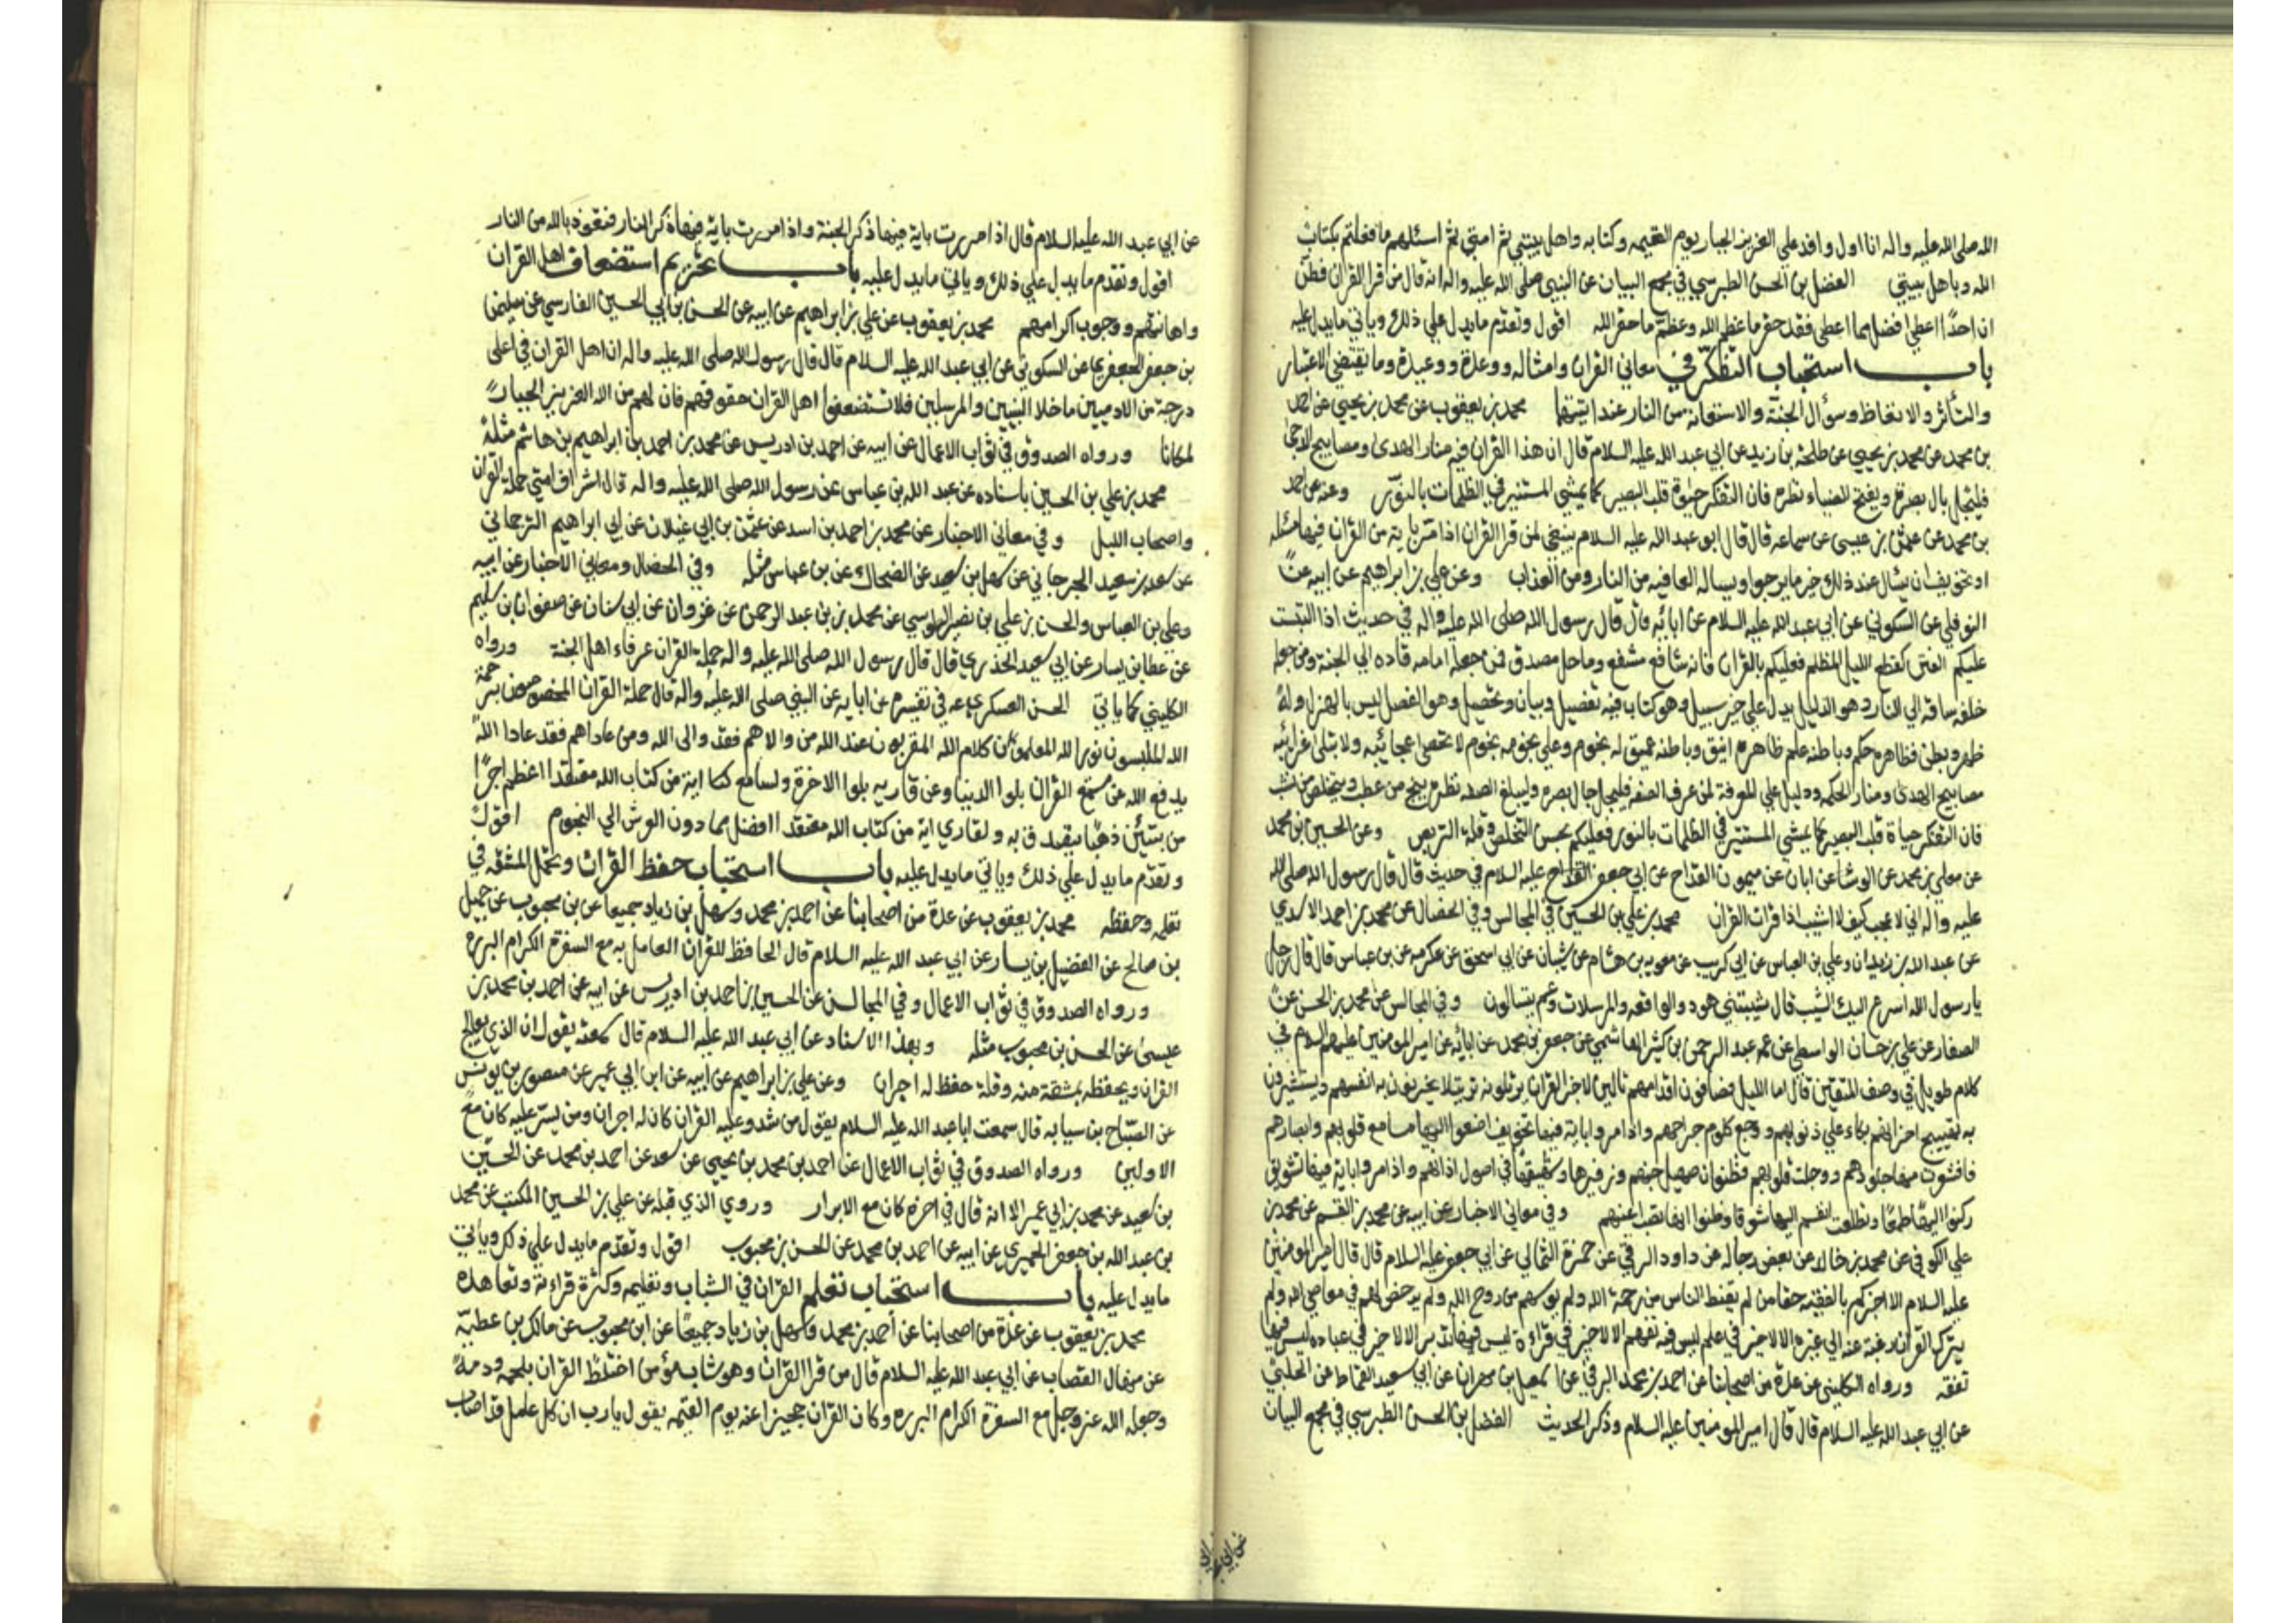 الله صلى الله عليه واله انا اول وافد علي العزيز الجبار يوم القيمه وكتابه واهل بيتي ثم امتي ثم اسئلهم ما فعلتم بكتاب
الله وباهل بيتي الفضل بن الحسن الطبرسي في مجمع البيان عن النبي صلى الله عليه واله انه قال من قرا القران فظن
ان احدًا اعطي افضل مما اعطي فقد حقر ما عظم الله وعظم ما حقر الله اقول وتقدم ما يدل علي ذلك وياتي ما يدل عليه
باب استحباب التفكر في معاني القران وامثاله ووعده ووعيده وما يقتضي الاعتبار
والتأثر والاتعاظ وسؤال الجنة والاستعاذة من النار عند ايتيهما محمد بن يعقوب عن محمد بن يحيي عن احمد
بن محمد عن محمد بن يحيي عن طلحة بن زيد عن ابي عبد الله عليه السلام قال ان هذا القران فيه منار الهدى ومصابيح الدجى
فليجل جال بصره ويفتح للضياء نظره فان التفكر حيوة قلب البصير كما يمشي المستنير في الظلمات بالنور وعنه عن احمد
بن محمد عن عثمن بن عيسى عن سماعه قال قال ابو عبد الله عليه السلام ينبغي لمن قرا القران اذا مر باية من القران فيها مسئلة
او تخويف ان يسئل عند ذلك خير ما يرجوا ويساله العافيه من النار ومن العذاب وعن علي بن ابراهيم عن ابيه عن
النوفلي عن السكوني عن ابي عبد الله عليه السلام عن ابائه قال قال رسول الله صلى الله عليه واله في حديث اذا التبست
عليكم الفتن كقطع الليل المظلم فعليكم بالقران فانه شافع مشفع وماحل مصدق فمن جعله امامه قاده الي الجنة ومن جعله
خلفه ساقه الي النار وهو الدليل يدل علي خير سبيل وهو كتاب فيه تفصيل وبيان وتحصيل وهو الفصل ليس بالهزل وله
ظهر وبطن فظاهره حكم وباطنه علم ظاهره انيق وباطنه عميق له نجوم وعلي نجومه نجوم لا تحصى عجائبه ولا تبلى غرائبه
مصابيح الهدى ومنار الحكمه ودليل علي المعرفة لمن عرف الصفه فليجل جال بصره وليبلغ الصفه نظره ينج من عطب ويتخلص من نشب
فان التفكر حياة قلب البصير كما يمشي المستنير في الظلمات بالنور فعليكم بحسن التخلص وقلة التربص وعن الحسين بن محمد
عن معلي بن محمد عن الوشا عن ابان عن ميمون القداح عن ابي جعفر عليه السلام في حديث قال قال رسول الله صلى الله
عليه واله اني لاعجب كيف لا اشيب اذا قرات القران محمد بن علي بن الحسين في المجالس وفي الخصال عن محمد بن احمد الاسدي
عن عبد الله بن زيدان وعلي بن العباس عن ابي كريب عن معويه بن هشام عن شيبان عن ابي اسحق عن عكرمه عن بن عباس قال قال رجل
يا رسول الله اسرع اليك الشيب قال شيبتني هود والواقعه والمرسلات وعم يتسالون وفي المجالس عن محمد بن الحسن عن
الصفار عن علي بن حسان الواسطي عن عمه عبد الرحمن بن كثير الهاشمي عن جعفر بن محمد عن ابائه عن امير المومنين عليهم السلام في
كلام طويل في وصف المتقين قال اما الليل فصافون اقدامهم تالين لاجزاء القران يرتلونه ترتيلا يحزنون به انفسهم ويستثيرون
به تهييج احزانهم بكاء علي ذنوبهم ووجع كلوم جراحهم واذا مروا باية فيها تخويف اصغوا اليها مسامع قلوبهم وابصارهم
فاقشعرت منها جلودهم ووجلت قلوبهم فظنوا ان صهيل جهنم وزفيرها وشهيقها في اصول اذانهم واذا مروا باية فيها تشويق
ركنوا اليها طمعًا وتطلعت انفسهم اليها شوقا وظنوا انها نصب اعينهم وفي معاني الاخبار عن ابيه عن محمد بن القسم عن محمد بن
علي الكوفي عن محمد بن خالد عن بعض رجاله عن داود الرقي عن حمزة الثمالي عن ابي جعفر عليه السلام قال قال امير المومنين
عليه السلام الا اخبركم بالفقيه حقا من لم يقنط الناس من رحمة الله ولم يوسهم من روح الله ولم يرخص لهم في معاصي الله ولم
يترك القران رغبة عنه الي غيره الا لا خير في علم ليس فيه تفهم الا لا خير في قراءة ليس فيها تدبر الا لا خير في عباده ليس فيها
تفقه ورواه الكليني عن عدة من اصحابنا عن احمد بن محمد البرقي عن اسمعيل بن مهران عن ابي سعيد القماط عن الحلبي
عن ابي عبد الله عليه السلام قال قال امير المومنين عليه السلام وذكر الحديث الفضل بن الحسن الطبرسي في مجمع البيان
عن ابي
عن ابي عبد الله عليه السلام قال اذا مررت باية فيها ذكر الجنة واذا مررت باية فيها ذكر النار فتعوذ بالله من النار
اقول وتقدم ما يدل علي ذلك وياتي ما يدل عليه باب تحريم استضعاف اهل القران
واهانتهم ووجوب اكرامهم محمد بن يعقوب عن علي بن ابراهيم عن ابيه عن الحسن بن ابي الحسين الفارسي عن سليمن
بن جعفر الجعفري عن السكوني عن ابي عبد الله عليه السلام قال قال رسول الله صلى الله عليه واله ان اهل القران في اعلى
درجة من الادميين ما خلا النبيين والمرسلين فلا تستضعفوا اهل القران حقوقهم فان لهم من الله العزيز الجبار
لمكانا ورواه الصدوق في ثواب الاعمال عن ابيه عن احمد بن ادريس عن محمد بن احمد بن ابراهيم بن هاشم مثله
محمد بن علي بن الحسين باسناده عن عبد الله بن عباس عن رسول الله صلى الله عليه واله قال اشراف امتي حملة القران
واصحاب الليل وفي معاني الاخبار عن محمد بن احمد بن اسد عن عثمن بن ابي غيلان عن ابي ابراهيم الترجماني
عن سعد بن سعيد الجرجاني عن نهشل بن سعيد عن الضحاك عن بن عباس مثله وفي الخصال ومعاني الاخبار عن ابيه
وعلي بن العباس والحسن بن علي بن نصر الطوسي عن محمد بن عبد الرحمن عن غزوان عن ابي سنان عن صفوان بن سليم
عن عطا بن يسار عن ابي سعيد الخذري قال قال رسول الله صلى الله عليه واله حملة القران عرفاء اهل الجنة ورواه
الكليني كما ياتي الحسن العسكري ع في تفسيره عن ابايه عن النبي صلى الله عليه واله قال حملة القران المخصوصون برحمة
الله الملبسون نور الله المعلمون كلام الله المقربون عند الله من والاهم فقد والى الله ومن عاداهم فقد عادا الله
يدفع الله عن مستمع القران بلوا الدنيا وعن قاريه بلوا الاخرة ولسامع اية من كتاب الله معتقدا اعظم اجرًا
من ذهبًا يتصدق به ولقاري اية من كتاب الله معتقدا افضل مما دون العرش الي التخوم اقول
وتقدم ما يدل علي ذلك وياتي ما يدل عليه باب استحباب حفظ القران وتحمل المشقه في
تعلمه وحفظه محمد بن يعقوب عن عدة من اصحابنا عن احمد بن محمد وسهل بن زياد جميعا عن بن محبوب عن جميل
بن صالح عن الفضيل بن يسار عن ابي عبد الله عليه السلام قال الحافظ للقران العامل به مع السفرة الكرام البرره
ورواه الصدوق في ثواب الاعمال وفي المجالس عن الحسين بن احمد بن ادريس عن ابيه عن احمد بن محمد بن
عيسى عن الحسن بن محبوب مثله وبهذا الاسناد عن ابي عبد الله عليه السلام قال سمعته يقول ان الذي يعالج
القران ويحفظه بمشقة منه وقلة حفظ له اجران وعن علي بن ابراهيم عن ابيه عن ابن ابي عمير عن منصور بن يونس
عن الصباح بن سيابه قال سمعت ابا عبد الله عليه السلام يقول من شدد عليه القران كان له اجران ومن يسر عليه كان مع
الاولين ورواه الصدوق في ثواب الاعمال عن احمد بن محمد بن يحيي عن سعد عن احمد بن محمد عن الحسين
بن سعيد عن محمد بن ابي عمير الا انه قال في اخره كان مع الابرار وروي الذي قبله عن علي بن الحسين المكتب عن محمد
بن عبد الله بن جعفر الحميري عن ابيه عن احمد بن محمد عن الحسن بن محبوب اقول وتقدم ما يدل علي ذلك وياتي
ما يدل عليه باب استحباب تعلم القران في الشباب وتعليمه وكثرة قراءته وتعاهده
محمد بن يعقوب عن عدة من اصحابنا عن أحمد بن محمد وسهل بن زياد جميعًا عن ابن محبوب عن مالك بن عطية
عن منهال القصاب عن ابي عبد الله عليه السلام قال من قرا القران وهو شاب مؤمن اختلط القران بلحمه ودمه
وجعله الله عز وجل مع السفرة الكرام البرره وكان القران حجيزا عنه يوم القيمه يقول يا رب ان كل عامل قد اصاب